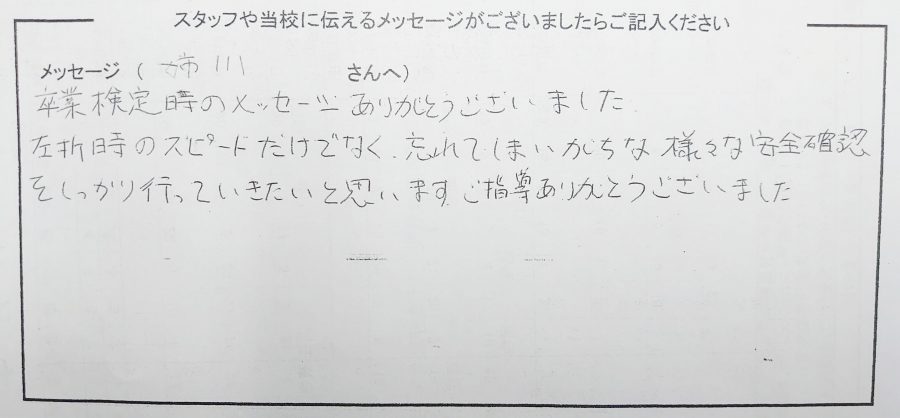 スタッフや当校に伝えるメッセージがございましたらご記入ください
メッセージ ( 姉川 さんへ)
卒業検定時のメッセージ ありがとうございました
左折時のスピードだけでなく、忘れてしまいがちな 様々な安全確認
をしっかり行っていきたいと思います。ご指導ありがとうございました